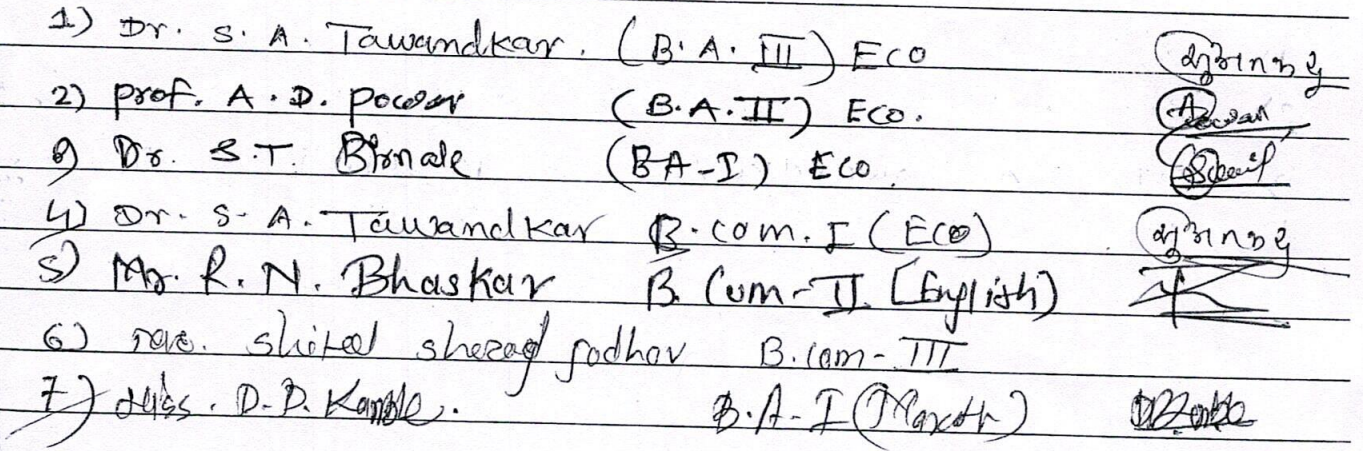 1) Dr. S. A. Tawandkar. (B.A. III) Eco
2) Prof. A. D. Powar (B.A. II) Eco.
3) Dr. S.T. Birnale (BA-I) Eco.
4) Dr. S. A. Tawandkar B.com. I (Eco)
5) Mr. R. N. Bhaskar B. Com-II [English)
6) shital jadhav B.com-III
7) Miss. D.D. Kamble. B.A-I (Marathi)